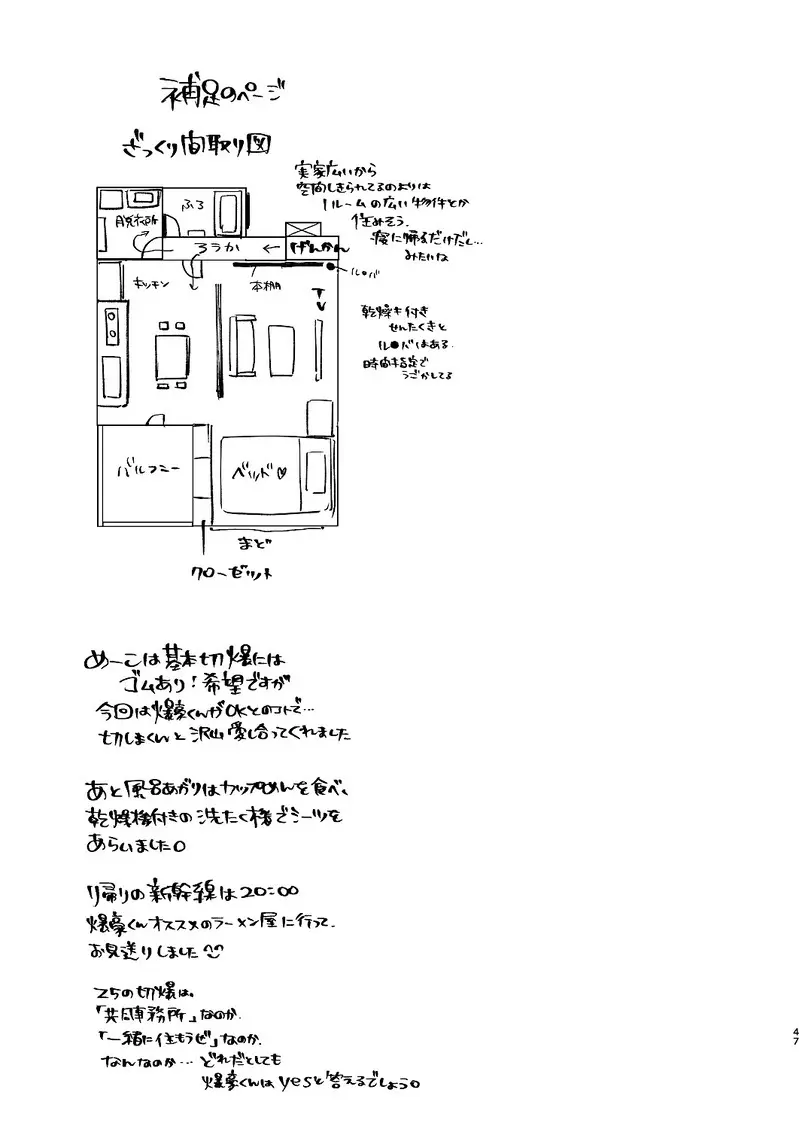 補足のページ
ざっくり間取り図
実家広いから
空間しきられてるのよりは
1ルームの広い物件とか
住みそう。
寝に帰るだけだし…
みたいな
脱衣所
ふろ
ろうか
←
げんかん
ル●バ
キッチン
本棚
TV
乾燥キ付き
せんたくきと
ル●バはある。
時間指定で
うごかしてる
バルコニー
ベッド♡
まど
クローゼット
めーこは基本切爆には
ゴムあり!希望ですが
今回は爆豪くんがOKとのコトで…
切しまくんと沢山愛し合ってくれました
あと風呂あがりはカップめんを食べ、
乾燥機付きの洗たく機でシーツを
あらいました。
帰りの新幹線は20:00
爆豪くんオススメのラーメン屋に行って、
お見送りしました
25の切爆は。
「共同事務所」なのか、
「一緒に住もうぜ」なのか、
なんなのか… どれだとしても
爆豪くんはyesと答えるでしょう。
47